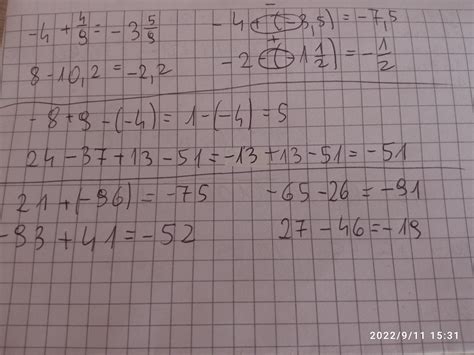 -4 + 4/9 = -3 5/9
-4 + (-3,5) = -7,5
8 - 10,2 = -2,2
-2 - (-1 1/2) = -1/2
-8 + 9 - (-4) = 1 - (-4) = 5
24 - 37 + 13 - 51 = -13 + 13 - 51 = -51
21 + (-96) = -75
-65 - 26 = -91
-93 + 41 = -52
27 - 46 = -19
2022/9/11 15:31